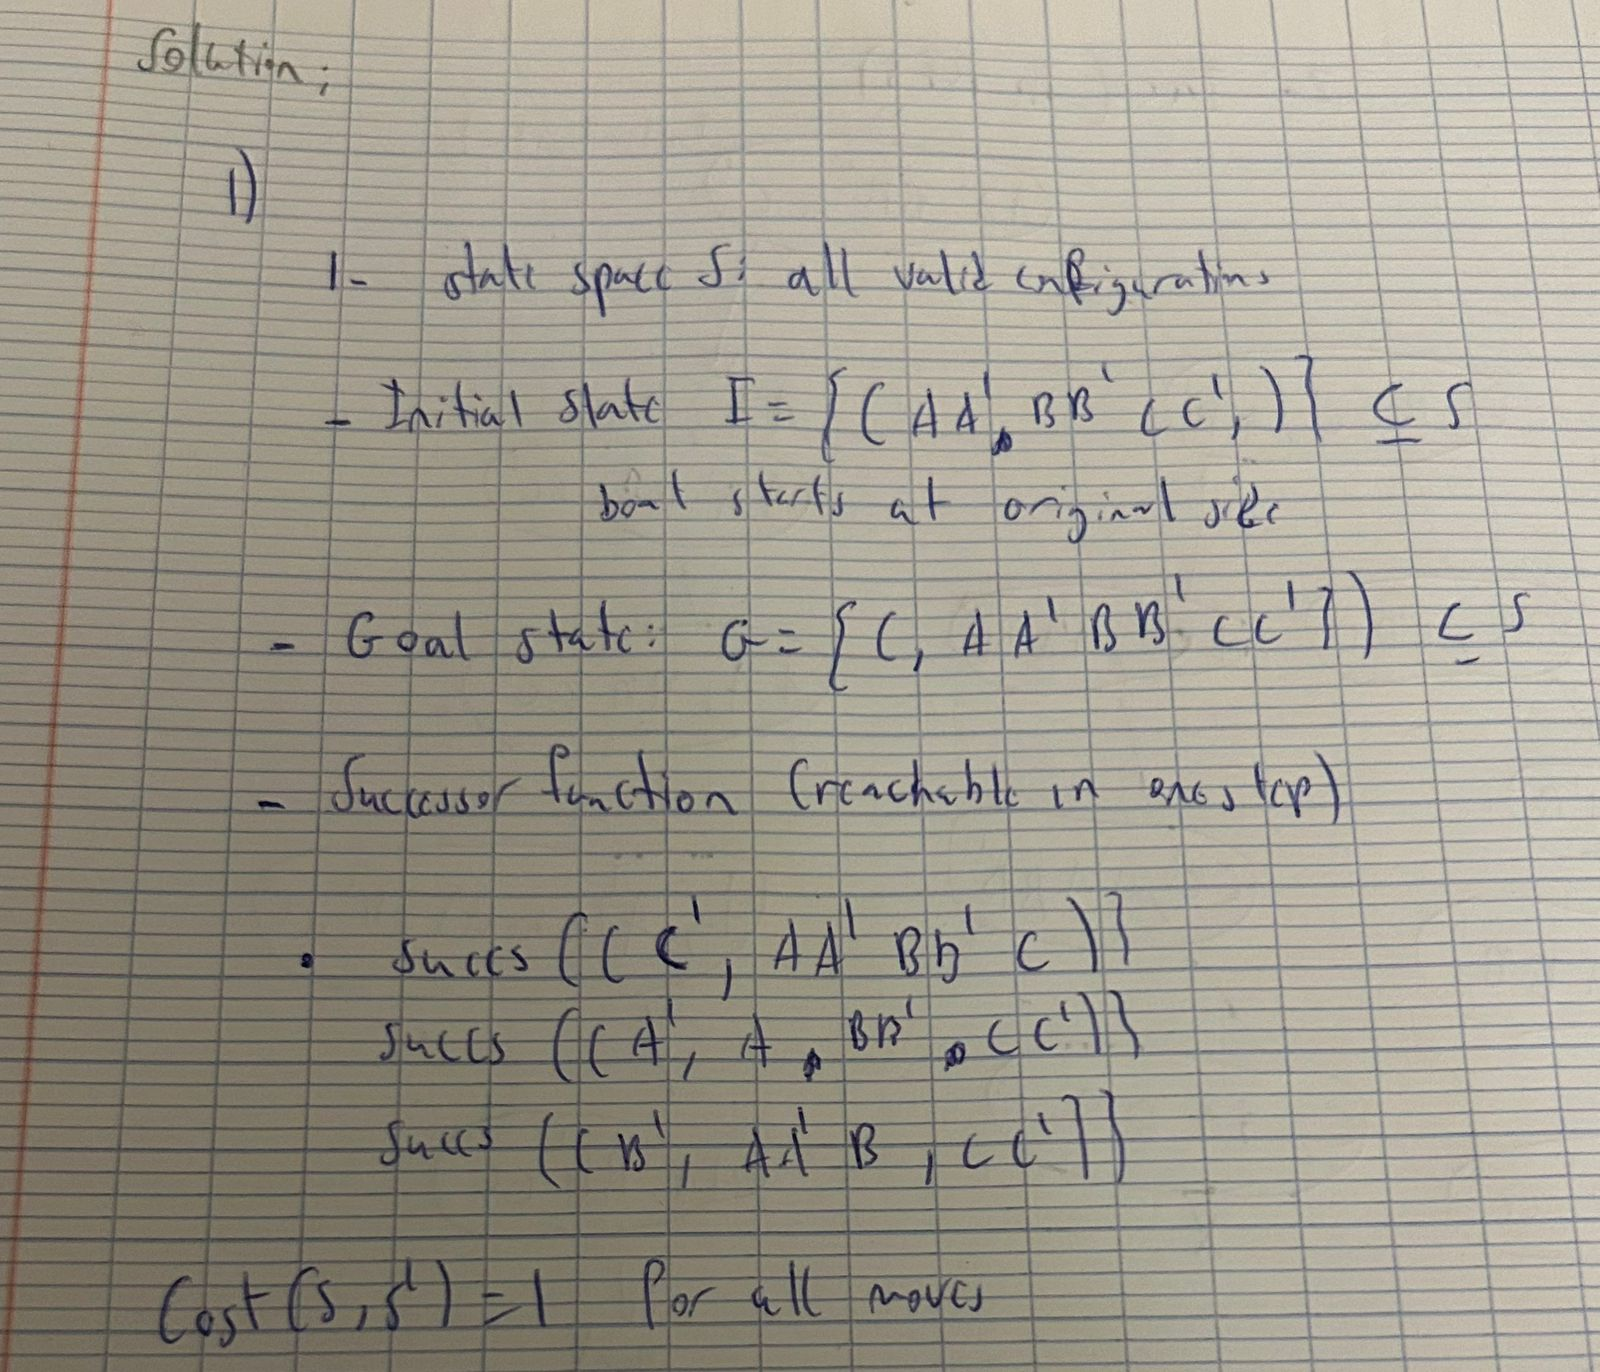 Solution;
1)
1- state space S: all valid configurations
- Initial state I = {(AA' BB' CC',)} ⊆ S
boat starts at original side
- Goal state: G = {(, AA' BB' CC'}) ⊆ S
- Successor function (reachable in one step)
• Succs ((C', AA' BB' C)}
Succs ((A', A, BB', CC')}
Succs ((B', AA' B, CC')}
Cost(S,S') = 1 for all moves